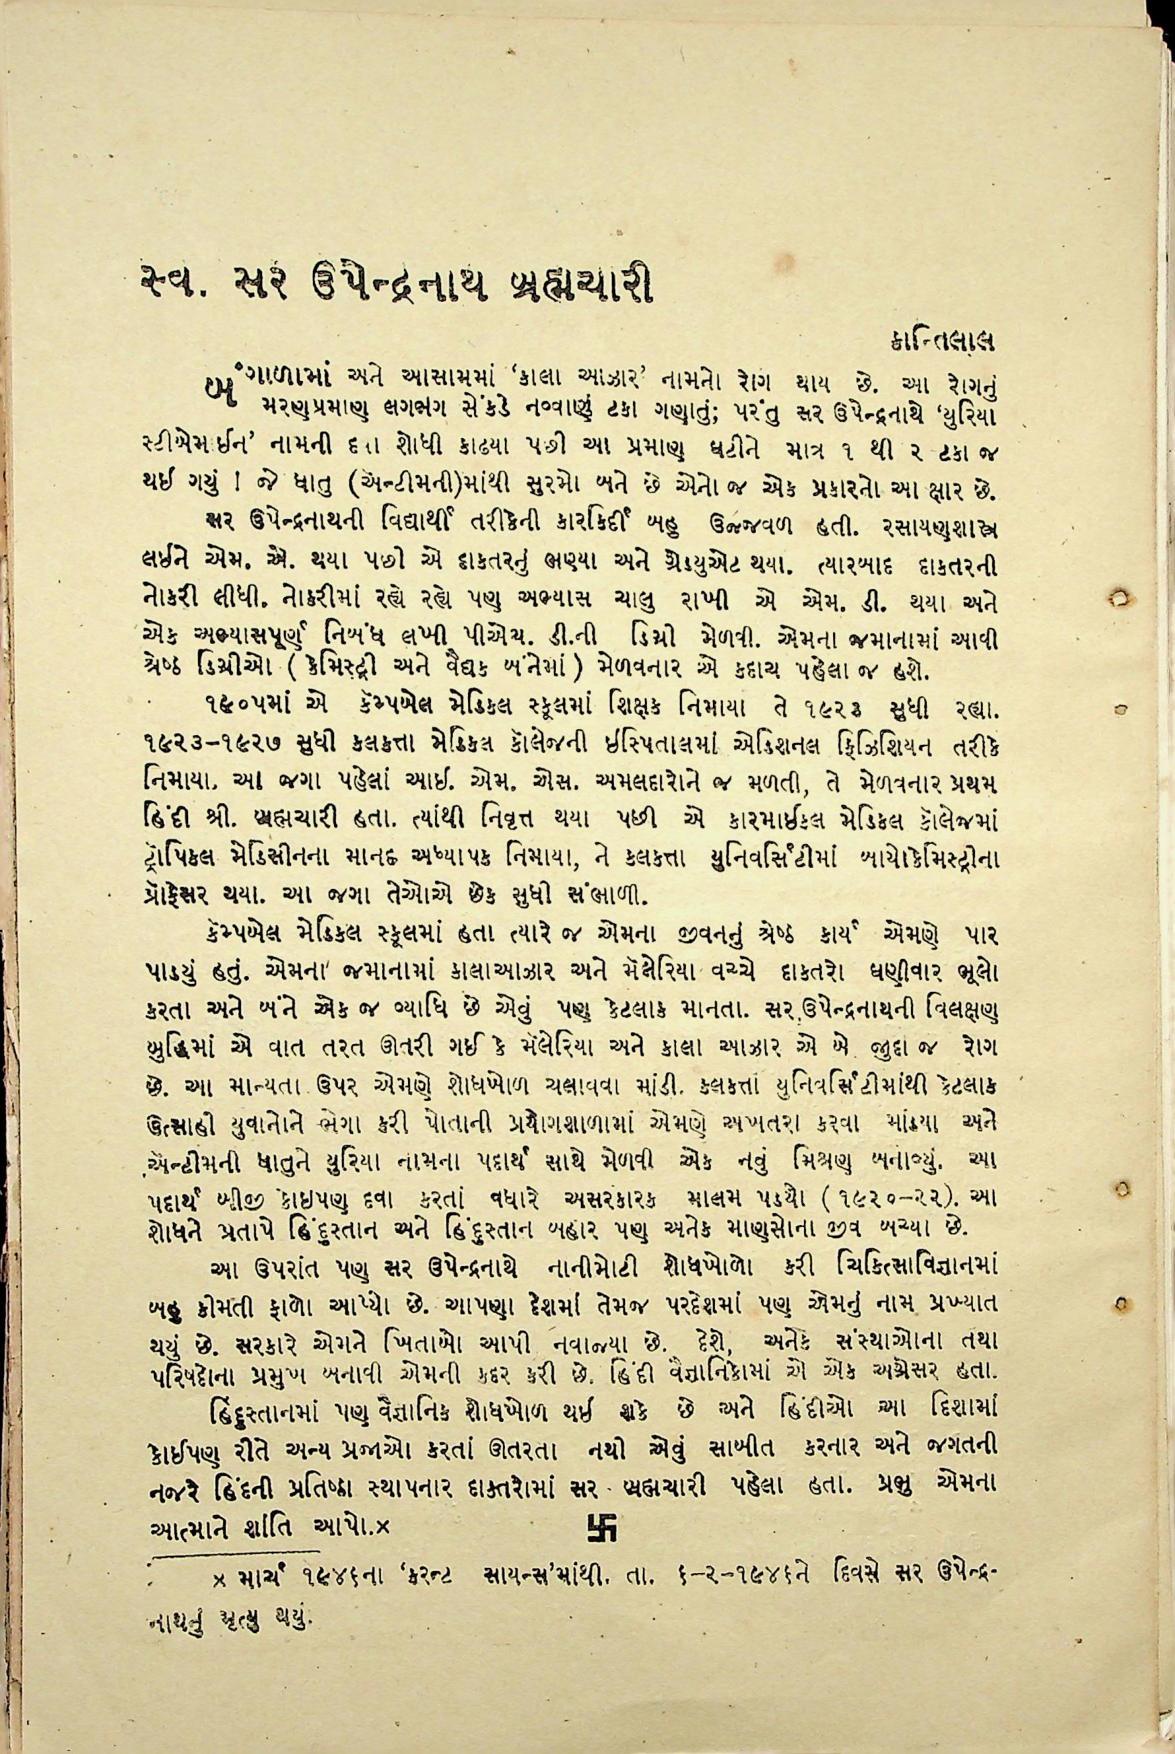 સ્વ. સર ઉપેન્દ્રનાથ બ્રહ્મચારી
કાન્તિલાલ
બંગાળામાં અને આસામમાં ‘કાલા આઝાર’ નામનો રોગ થાય છે. આ રોગનું
મરણપ્રમાણ લગભગ સેંકડે નવ્વાણું ટકા ગણાતું; પરંતુ સર ઉપેન્દ્રનાથે ‘યુરિયા
સ્ટીબેમાઈન’ નામની દવા શોધી કાઢયા પછી આ પ્રમાણ ઘટીને માત્ર ૧ થી ૨ ટકા જ
થઈ ગયું ! જે ધાતુ (ઍન્ટીમની)માંથી સુરમો બને છે એનો જ એક પ્રકારનો આ ક્ષાર છે.
સર ઉપેન્દ્રનાથની વિદ્યાર્થી તરીકેની કારકિર્દી બહુ ઉજ્જવળ હતી. રસાયણશાસ્ત્ર
લઈને એમ. એ. થયા પછી એ દાકતરનું ભણ્યા અને ગ્રેડયુએટ થયા. ત્યારબાદ દાકતરની
નોકરી લીધી. નોકરીમાં રહ્યે રહ્યે પણ અભ્યાસ ચાલુ રાખી એ એમ. ડી. થયા અને
એક અભ્યાસપૂર્ણ નિબંધ લખી પીએચ. ડી.ની ડિગ્રી મેળવી. એમના જમાનામાં આવી
શ્રેષ્ઠ ડિગ્રીઓ ( કેમિસ્ટ્રી અને વૈદ્યક બંનેમાં ) મેળવનાર એ કદાચ પહેલા જ હશે.
૧૯૦૫માં એ કૅમ્પબેલ મેડિકલ સ્કૂલમાં શિક્ષક નિમાયા તે ૧૯૨૩ સુધી રહ્યા.
૧૯૨૩-૧૯૨૭ સુધી કલકત્તા મેડિકલ કૉલેજની ઇસ્પિતાલમાં એડિશનલ ફિઝિશિયન તરીકે
નિમાયા. આ જગા પહેલાં આઈ. એમ. એસ. અમલદારોને જ મળતી, તે મેળવનાર પ્રથમ
હિંદી શ્રી. બ્રહ્મચારી હતા. ત્યાંથી નિવૃત્ત થયા પછી એ કારમાઈકલ મેડિકલ કૉલેજમાં
ટ્રૉપિકલ મેડિસીનના માનદ અધ્યાપક નિમાયા, ને કલકત્તા યુનિવર્સિટીમાં બાયોકેમિસ્ટ્રીના
પ્રૉફેસર થયા. આ જગા તેઓએ છેક સુધી સંભાળી.
કૅમ્પબેલ મેડિકલ સ્કૂલમાં હતા ત્યારે જ એમના જીવનનું શ્રેષ્ઠ કાર્ય એમણે પાર
પાડયું હતું. એમના જમાનામાં કાલાઆઝાર અને મૅલેરિયા વચ્ચે દાકતરો ઘણીવાર ભૂલો
કરતા અને બંને એક જ વ્યાધિ છે એવું પણ કેટલાક માનતા. સર ઉપેન્દ્રનાથની વિલક્ષણ
બુદ્ધિમાં એ વાત તરત ઊતરી ગઈ કે મૅલેરિયા અને કાલા આઝાર એ બે જુદા જ રોગ
છે. આ માન્યતા ઉપર એમણે શોધખોળ ચલાવવા માંડી. કલકત્તાં યુનિવર્સિટીમાંથી કેટલાક
ઉત્સાહી યુવાનોને ભેગા કરી પોતાની પ્રયોગશાળામાં એમણે અખતરા કરવા માંડયા અને
ઍન્ટીમની ધાતુને યુરિયા નામના પદાર્થ સાથે મેળવી એક નવું મિશ્રણ બનાવ્યું. આ
પદાર્થ બીજી કોઇપણ દવા કરતાં વધારે અસરકારક માલમ પડયો ( ૧૯૨૦-૨૨). આ
શોધને પ્રતાપે હિંદુસ્તાન અને હિંદુસ્તાન બહાર પણ અનેક માણસોના જીવ બચ્યા છે.
આ ઉપરાંત પણ સર ઉપેન્દ્રનાથે નાનીમોટી શોધખોળો કરી ચિકિત્સાવિજ્ઞાનમાં
બહુ કીમતી ફાળો આપ્યો છે. આપણા દેશમાં તેમજ પરદેશમાં પણ એમનું નામ પ્રખ્યાત
થયું છે. સરકારે એમને ખિતાબો આપી નવાજ્યા છે. દેશે, અનેક સંસ્થાઓના તથા
પરિષદોના પ્રમુખ બનાવી એમની કદર કરી છે. હિંદી વૈજ્ઞાનિકોમાં એ એક અગ્રેસર હતા.
હિંદુસ્તાનમાં પણ વૈજ્ઞાનિક શોધખોળ થઈ શકે છે અને હિંદીઓ આ દિશામાં
કોઈપણ રીતે અન્ય પ્રજાઓ કરતાં ઊતરતા નથી એવું સાબીત કરનાર અને જગતની
નજરે હિંદની પ્રતિષ્ઠા સ્થાપનાર દાક્તરોમાં સર બ્રહ્મચારી પહેલા હતા. પ્રભુ એમના
આત્માને શાંતિ આપો.×
× માર્ચ ૧૯૪૬ના ‘કરન્ટ સાયન્સ’માંથી. તા. ૬-૨-૧૯૪૬ને દિવસે સર ઉપેન્દ્ર-
નાથનું મૃત્યુ થયું.